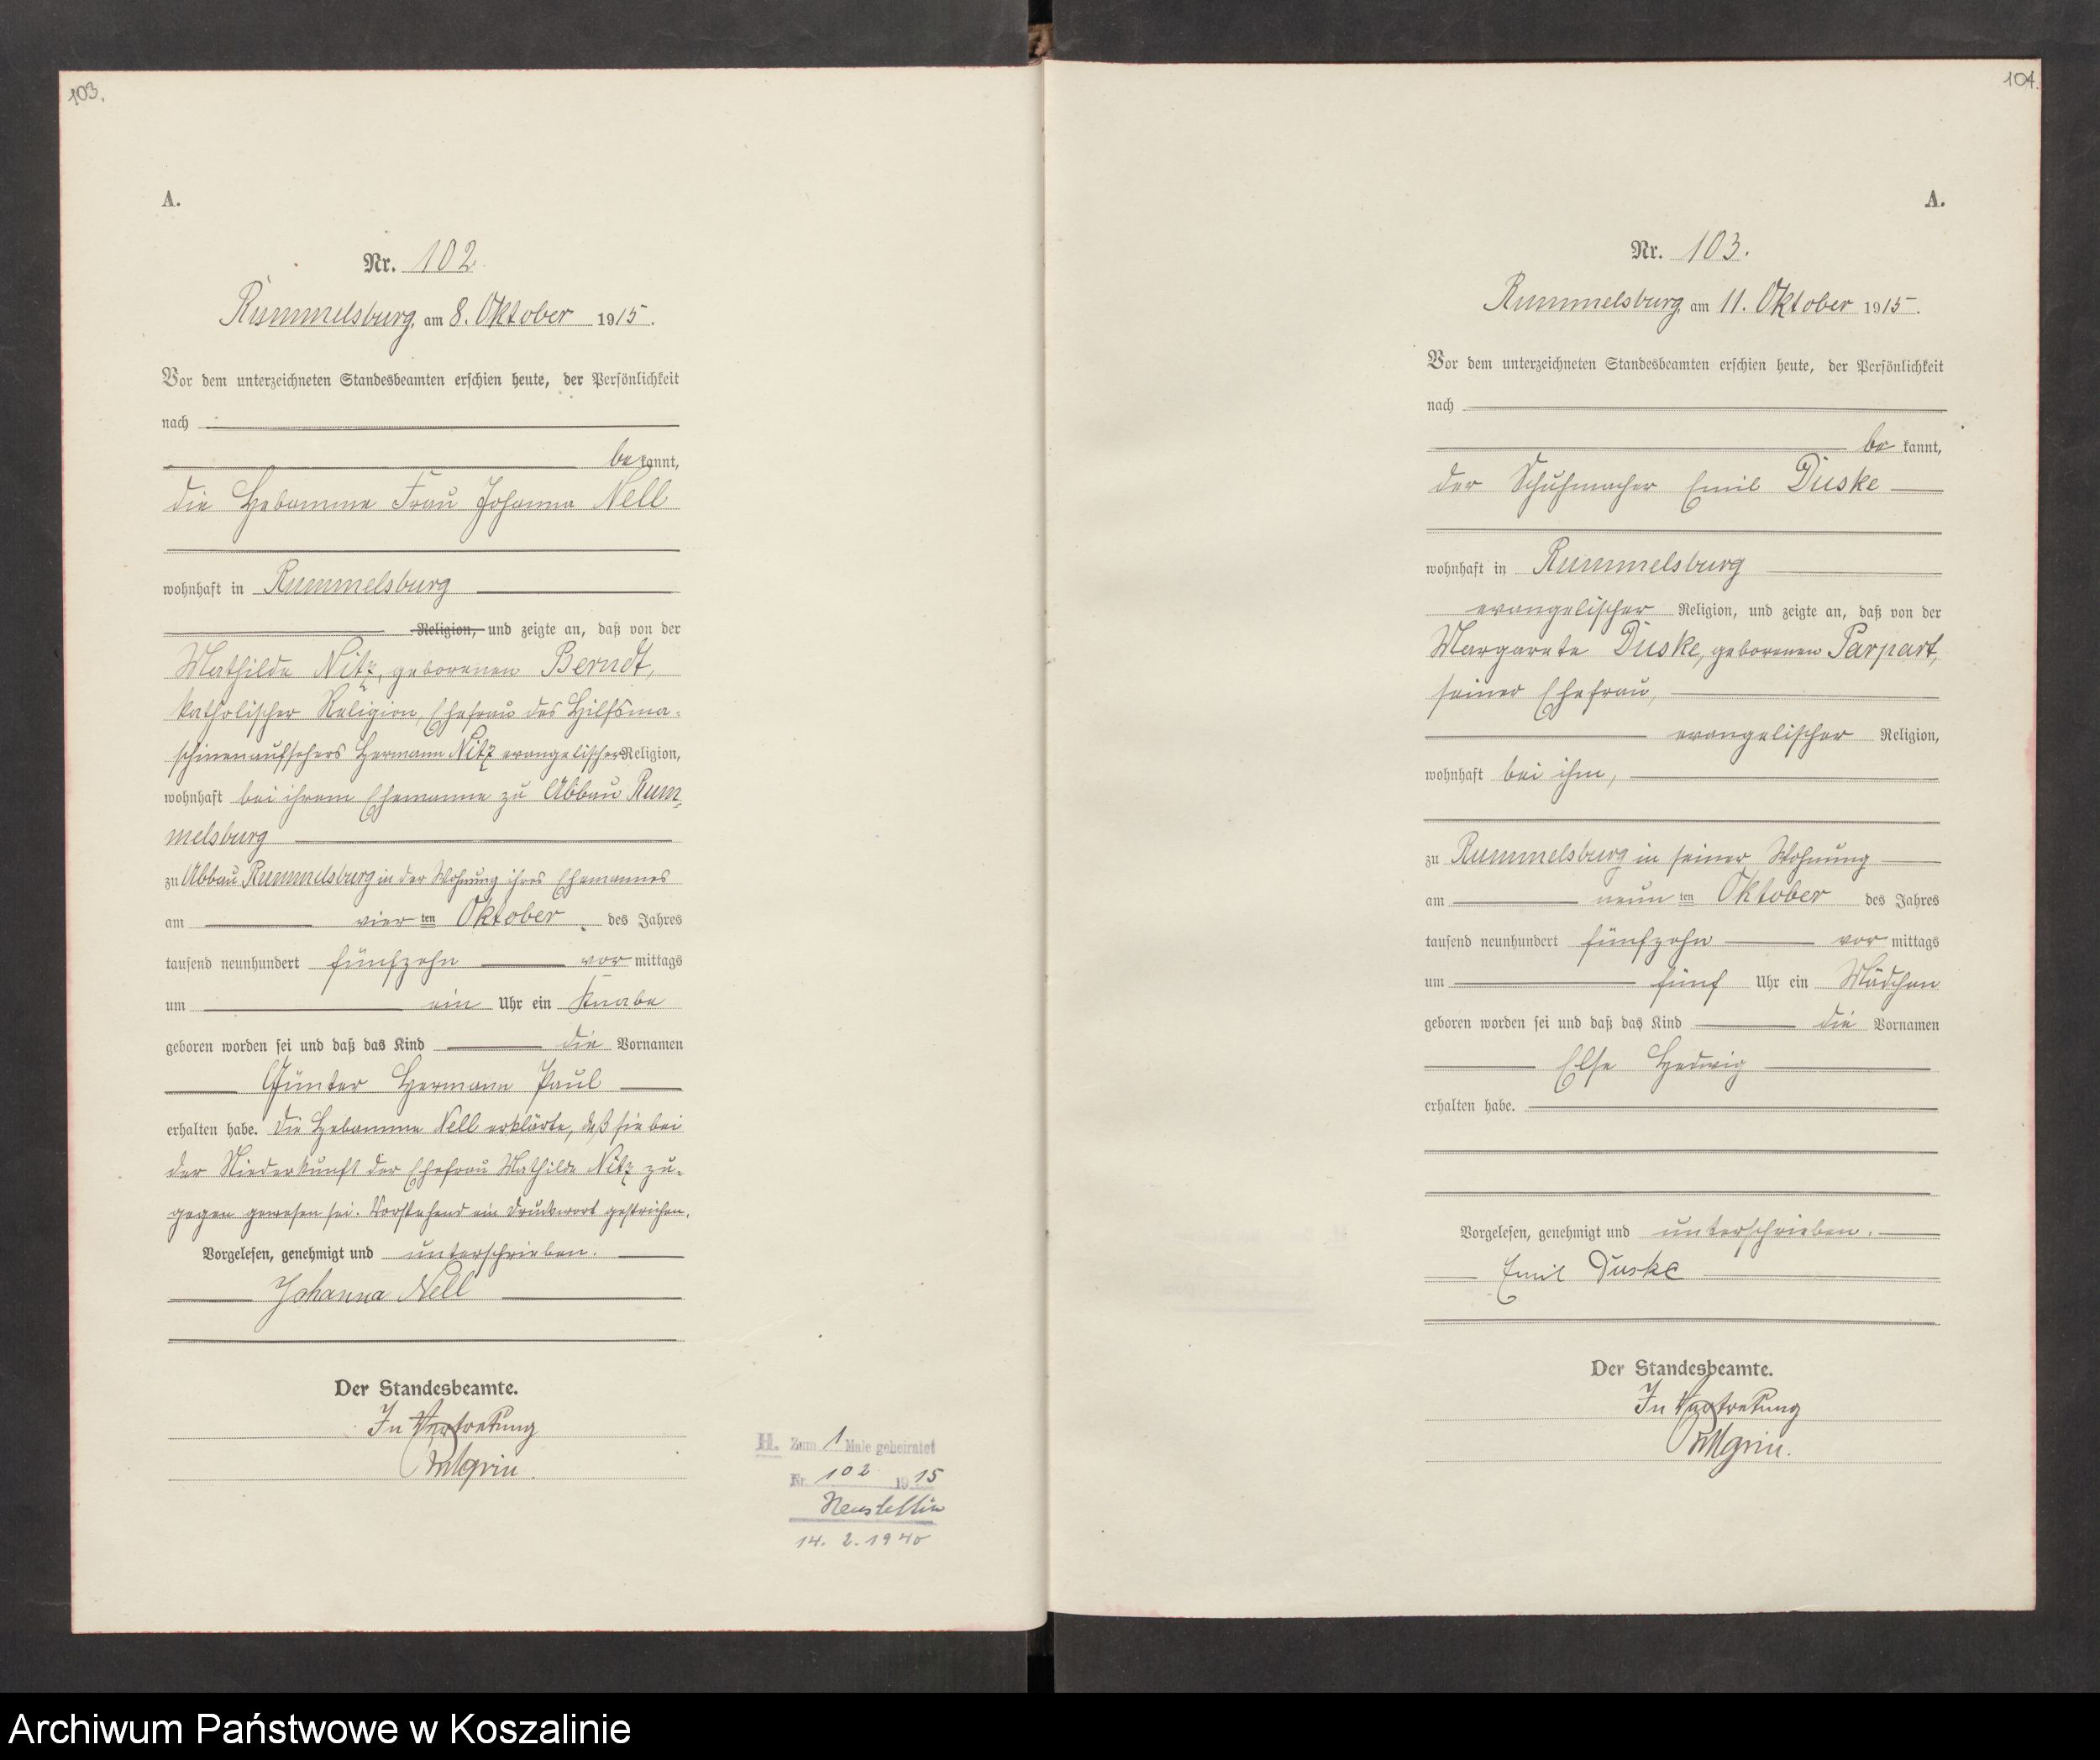 103.
A.
Nr. 102.
Rummelsburg, am 8. Oktober 1915.
Vor dem unterzeichneten Standesbeamten erschien heute, der Persönlichkeit
nach
bekannt,
die Hebamme Frau Johanna Nell
wohnhaft in Rummelsburg
Religion, und zeigte an, daß von der
Mathilde Nitz, geborenen Berndt,
katholischer Religion, Ehefrau des Hilfsma-
schinenaufsehers Hermann Nitz evangelischer Religion,
wohnhaft bei ihrem Ehemanne zu Abbau Rum-
melsburg
zu Abbau Rummelsburg in der Wohnung ihres Ehemannes
am vierten Oktober des Jahres
tausend neunhundert fünfzehn vormittags
um ein Uhr ein Knabe
geboren worden sei und daß das Kind die Vornamen
Günter Hermann Paul
erhalten habe. Die Hebamme Nell erklärte, daß sie bei
der Niederkunft der Ehefrau Mathilde Nitz zu-
gegen gewesen sei. Vorstehend ein Druckwort gestrichen.
Vorgelesen, genehmigt und unterschrieben.
Johanna Nell
Der Standesbeamte.
In Vertretung
H. Zum 1 Male geheiratet
Nr. 102 1915
Neustettin
14. 2. 1940
104.
A.
Nr. 103.
Rummelsburg, am 11. Oktober 1915.
Vor dem unterzeichneten Standesbeamten erschien heute, der Persönlichkeit
nach
bekannt,
der Schuhmacher Emil Duske
wohnhaft in Rummelsburg
evangelischer Religion, und zeigte an, daß von der
Margarete Duske, geborenen Parpart,
seiner Ehefrau,
evangelischer Religion,
wohnhaft bei ihm,
zu Rummelsburg in seiner Wohnung
am neunten Oktober des Jahres
tausend neunhundert fünfzehn vormittags
um fünf Uhr ein Mädchen
geboren worden sei und daß das Kind die Vornamen
Else Hedwig
erhalten habe.
Vorgelesen, genehmigt und unterschrieben.
Emil Duske
Der Standesbeamte.
In Vertretung
Archiwum Państwowe w Koszalinie